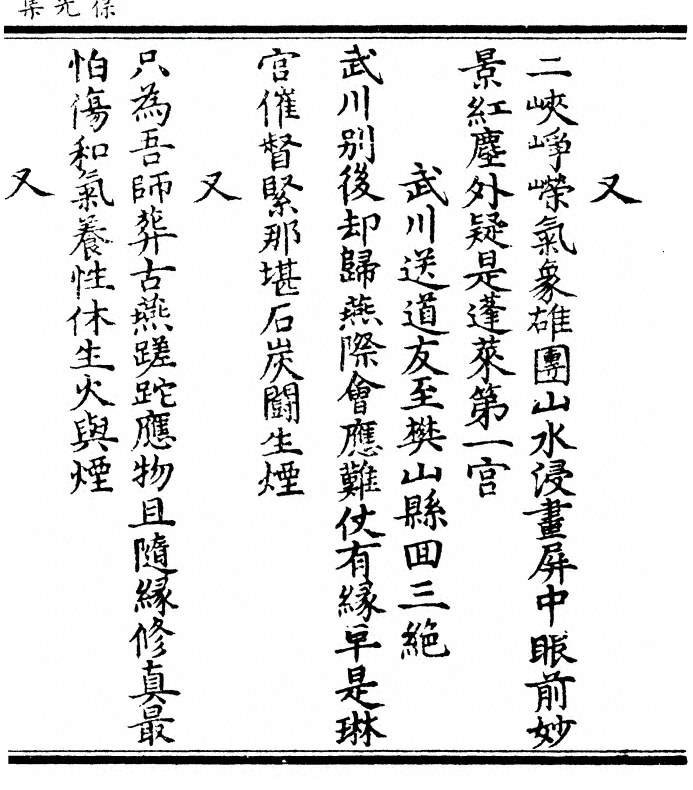 又
二峽崢嶸氣象雄團山水浸畫屏中眼前妙
景紅塵外疑是蓬萊第一宮
武川送道友至樊山縣回三絶
武川别後却歸燕際會應難仗有緣早是琳
宫催督緊那堪石炭鬪生煙
又
只為吾師葬古燕蹉跎應物且隨緣修真最
怕傷和氣養性休生火與煙
又